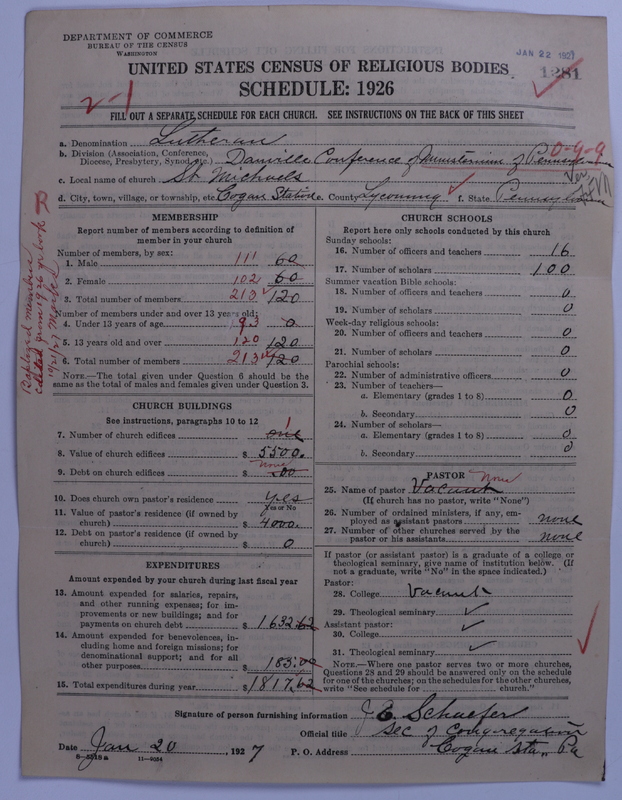 DEPARTMENT OF COMMERCE
BUREAU OF THE CENSUS
WASHINGTON
JAN 22 1927
1281
UNITED STATES CENSUS OF RELIGIOUS BODIES
SCHEDULE: 1926
2-1
FILL OUT A SEPARATE SCHEDULE FOR EACH CHURCH. SEE INSTRUCTIONS ON THE BACK OF THIS SHEET
a. Denomination Lutheran
0-9-9
b. Division (Association, Conference, Diocese, Presbytery, Synod, etc.) Danville Conference of Ministerium of Pennsylvania
c. Local name of church St. Michaels
d. City, town, village, or township, etc. Cogan Station e. County Lycoming f. State Pennsylvania
MEMBERSHIP
Report number of members according to definition of member in your church
Number of members, by sex:
1. Male 111 60
2. Female 102 60
3. Total number of members 213 120
Number of members under and over 13 years old:
4. Under 13 years of age 93 0
5. 13 years old and over 120 120
6. Total number of members 213 120
NOTE.—The total given under Question 6 should be the same as the total of males and females given under Question 3.
Baptized members
edited from 1926 yr book
CHURCH BUILDINGS
See instructions, paragraphs 10 to 12
7. Number of church edifices one 1
8. Value of church edifices $ 5500.
9. Debt on church edifices $ 00 none
10. Does church own pastor's residence yes
Yes or No
11. Value of pastor's residence (if owned by church) $ 4000.
12. Debt on pastor's residence (if owned by church) $ 0
EXPENDITURES
Amount expended by your church during last fiscal year
13. Amount expended for salaries, repairs, and other running expenses; for improvements or new buildings; and for payments on church debt $ 1632.62
14. Amount expended for benevolences, including home and foreign missions; for denominational support; and for all other purposes $ 185.00
15. Total expenditures during year $ 1817.62
CHURCH SCHOOLS
Report here only schools conducted by this church
Sunday schools:
16. Number of officers and teachers 16
17. Number of scholars 100
Summer vacation Bible schools:
18. Number of officers and teachers 0
19. Number of scholars 0
Week-day religious schools:
20. Number of officers and teachers 0
21. Number of scholars 0
Parochial schools:
22. Number of administrative officers 0
23. Number of teachers—
a. Elementary (grades 1 to 8) 0
b. Secondary 0
24. Number of scholars—
a. Elementary (grades 1 to 8) 0
b. Secondary 0
PASTOR
25. Name of pastor Vacant None
(If church has no pastor, write "None")
26. Number of ordained ministers, if any, employed as assistant pastors none
27. Number of other churches served by the pastor or his assistants none
If pastor (or assistant pastor) is a graduate of a college or theological seminary, give name of institution below. (If not a graduate, write "No" in the space indicated.)
Pastor:
28. College Vacant
29. Theological seminary
Assistant pastor:
30. College
31. Theological seminary
NOTE.—Where one pastor serves two or more churches, Questions 28 and 29 should be answered only on the schedule for one of the churches; on the schedules for the other churches, write "See schedule for church."
Signature of person furnishing information J E Schaefer
Official title Sec of Congregation
Date Jan 20, 1927 P. O. Address Cogan Sta., Pa
8-5515a 11-9034